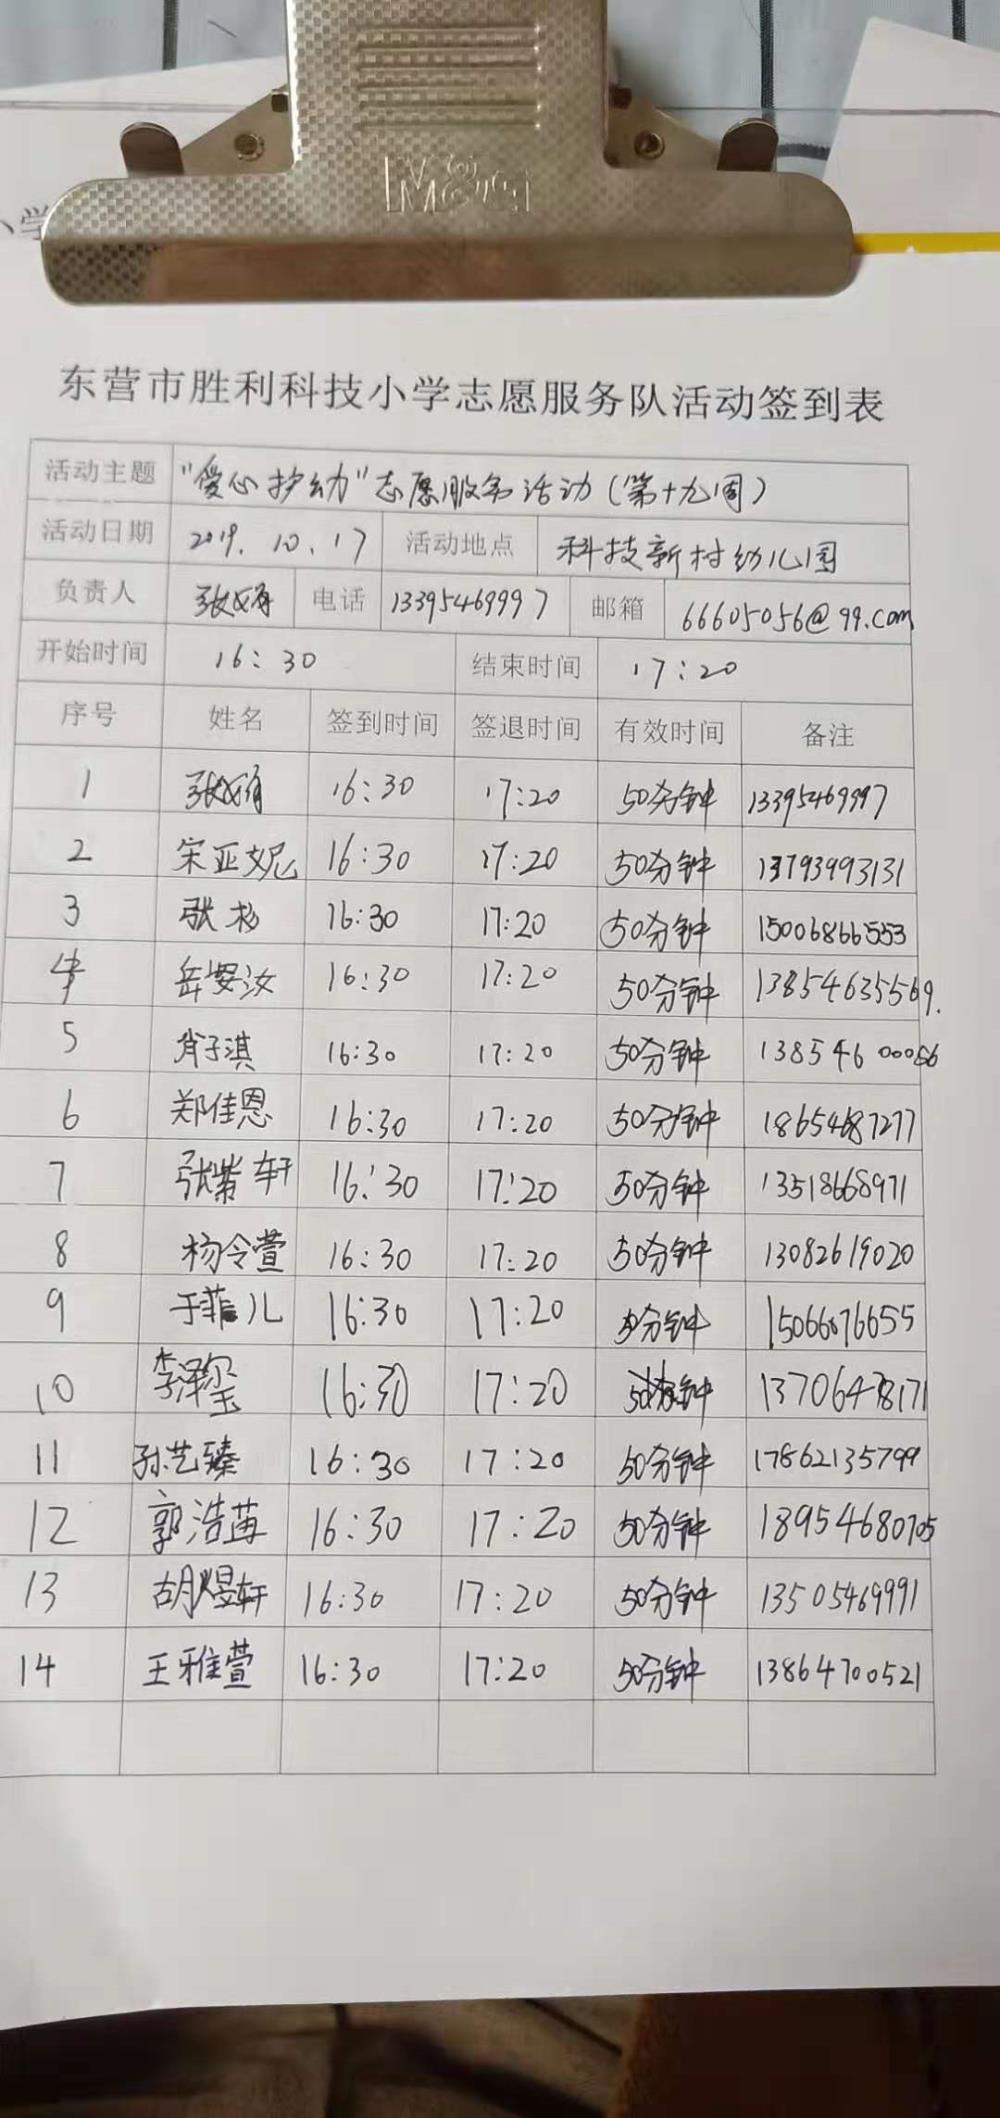 M&G
小学
东营市胜利科技小学志愿服务队活动签到表
活动主题 "爱心护幼"志愿服务活动(第十九周)
活动日期 2019.10.17 活动地点 科技新村幼儿园
负责人 电话 13395469997 邮箱 66605056@qq.com
开始时间 16:30 结束时间 17:20
序号 姓名 签到时间 签退时间 有效时间 备注
1 16:30 17:20 50分钟 13395469997
2 宋亚妮 16:30 17:20 50分钟 13793993131
3 张杉 16:30 17:20 50分钟 15006866553
4 岳安汝 16:30 17:20 50分钟 13854635569.
5 肖子淇 16:30 17:20 50分钟 13854600066
6 郑佳恩 16:30 17:20 50分钟 18654687277
7 张紫轩 16:30 17:20 50分钟 13518668971
8 杨令萱 16:30 17:20 50分钟 13082619020
9 于菲儿 16:30 17:20 50分钟 15066076655
10 李泽玺 16:30 17:20 50分钟 13706478171
11 孙艺臻 16:30 17:20 50分钟 17862135799
12 郭浩苒 16:30 17:20 50分钟 18954680705
13 胡煜轩 16:30 17:20 50分钟 13505469991
14 王雅萱 16:30 17:20 50分钟 13864700521